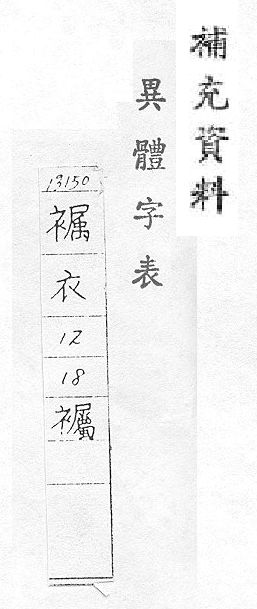 補充資料
異體字表
13150
衣
12
18